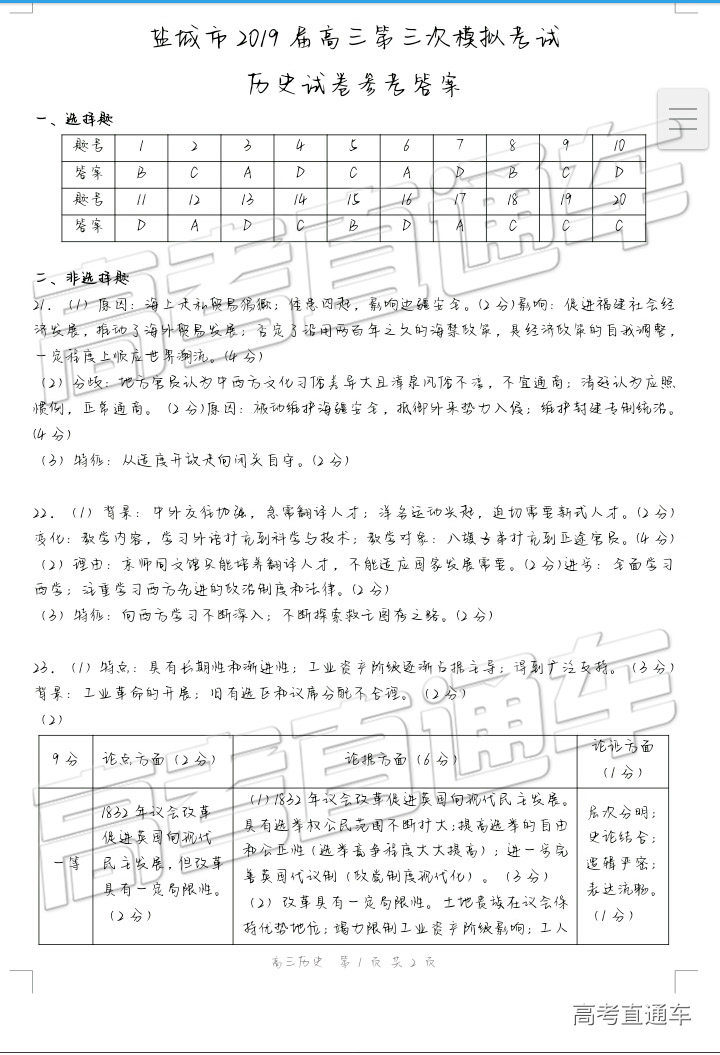 盐城市2019届高三第三次模拟考试
历史试卷参考答案
一、选择题
题号 1 2 3 4 5 6 7 8 9 10
答案 B C A D C A D B C D
题号 11 12 13 14 15 16 17 18 19 20
答案 D A D C B D A C C C
二、非选择题
21. (1) 原因: 海上走私贸易猖獗; 倭患四起, 影响边疆安全。(2分)影响: 促进福建社会经
济发展, 推动了海外贸易发展; 否定了沿用两百年之久的海禁政策, 是经济政策的自我调整,
一定程度上顺应世界潮流。(4分)
(2) 分歧: 地方官员认为中西方文化习俗差异大且清泉风俗不清, 不宜通商; 清廷认为应照
惯例, 正常通商。(2分)原因: 被动维护海疆安全, 抵御外来势力入侵; 维护封建专制统治。
(4分)
(3) 特征: 从适度开放走向闭关自守。(2分)
22. (1) 背景: 中外交往加强, 急需翻译人才; 洋务运动兴起, 迫切需要新式人才。(2分)
变化: 教学内容, 学习外语扩充到科学与技术; 教学对象: 八旗子弟扩充到正途官员。(4分)
(2) 理由: 京师同文馆只能培养翻译人才, 不能适应国家发展需要。(2分)进步: 全面学习
西学; 注重学习西方先进的政治制度和法律。(2分)
(3) 特征: 向西方学习不断深入; 不断探索救亡图存之路。(2分)
23. (1) 特点: 具有长期性和渐进性; 工业资产阶级逐渐占据主导; 得到广泛支持。(3分)
背景: 工业革命的开展; 旧有选区和议席分配不合理。(2分)
(2)
9分 论点方面 (2分) 论据方面 (6分) 论证方面 (1分)
一等
1832年议会改革
促进英国向现代
民主发展, 但改革
具有一定局限性。
(2分)
(1) 1832年议会改革促进英国向现代民主发展。
具有选举权公民范围不断扩大; 提高选举的自由
和公正性 (选举竞争程度大大提高) ; 进一步完
善英国代议制 (政党制度现代化) 。 (3分)
(2) 改革具有一定局限性。土地贵族在议会保
持优势地位; 竭力限制工业资产阶级影响; 工人
层次分明;
史论结合;
逻辑严密;
表达流畅。
(1分)
高三历史 第1页 共2页
高考直通车
高考直通车
高考直通车